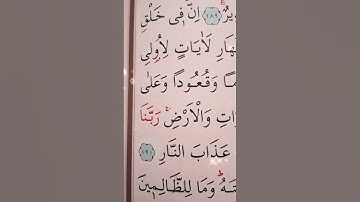 يرٌ ﴿١٨٩﴾ اِنَّ ف۪ي خَلْقِ
هَارِ لَاٰيَاتٍ لِاُو۬لِي
مًا وَقُعُودًا وَعَلٰى
اتِ وَالْاَرْضِۚ رَبَّنَا
عَذَابَ النَّارِ ﴿١٩١﴾
تَهُۜ وَمَا لِلظَّالِم۪ينَ